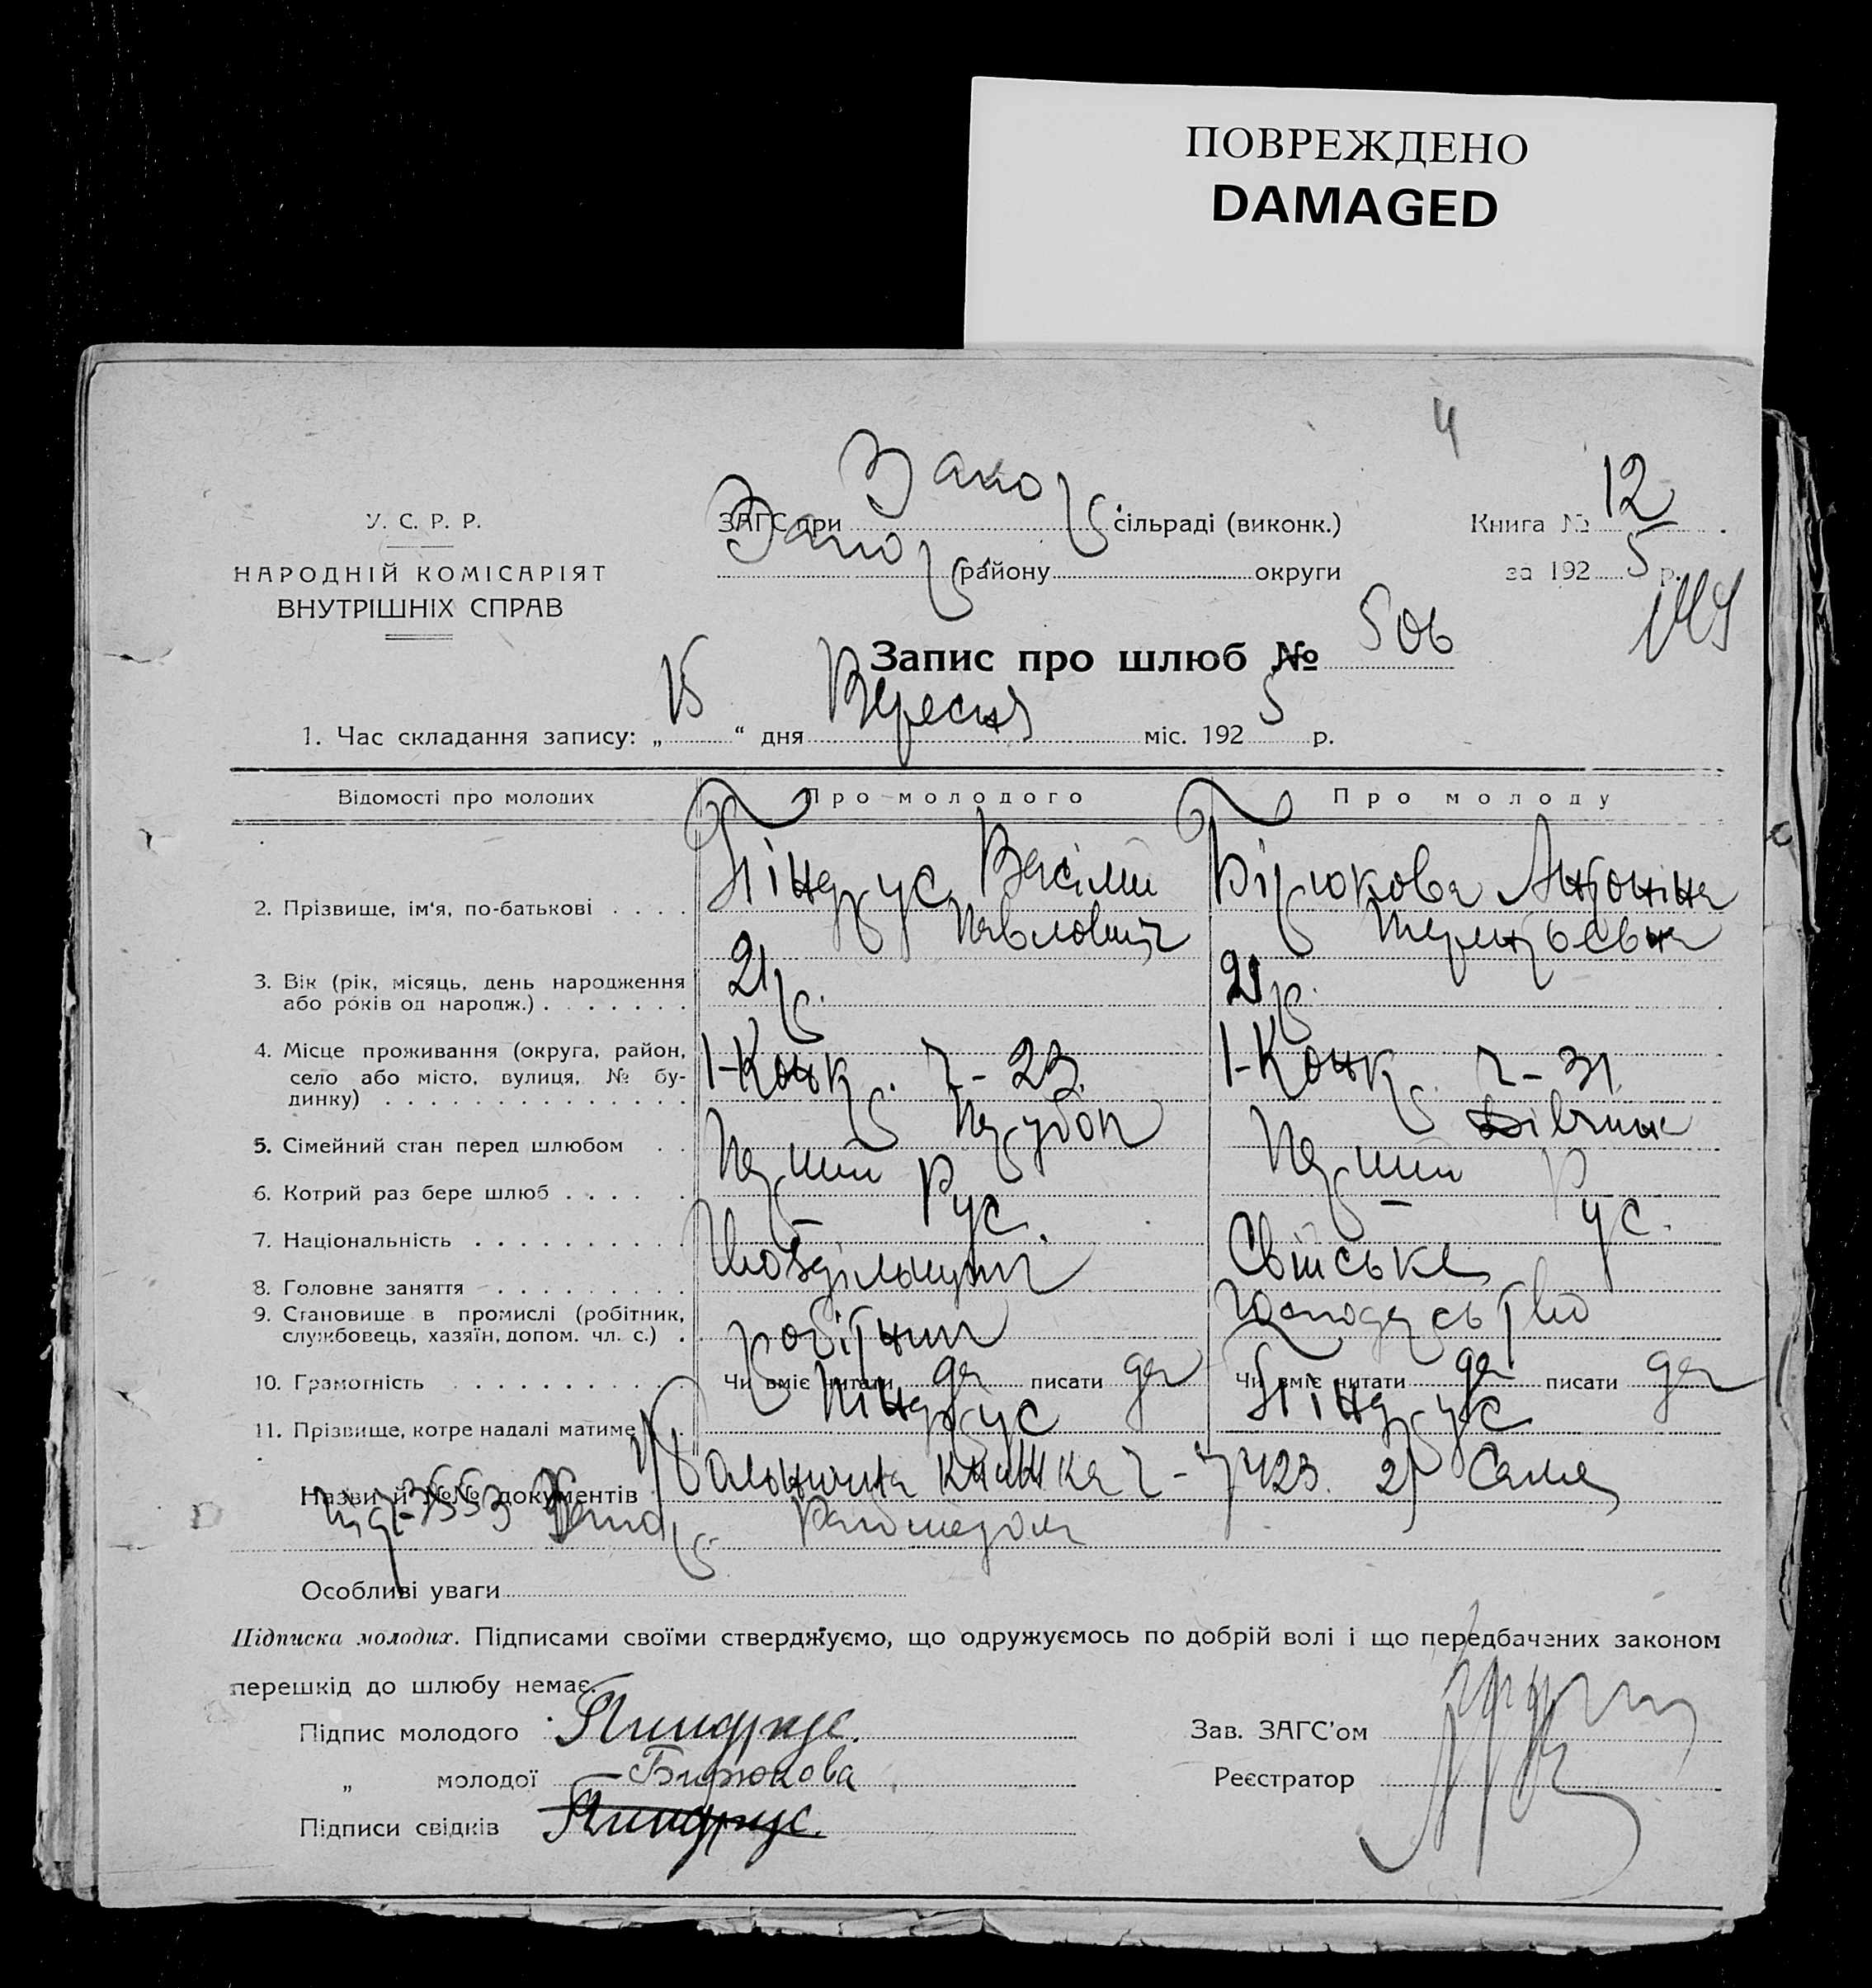 ПОВРЕЖДЕНО
DAMAGED
4
У. С. Р. Р.
НАРОДНІЙ КОМІСАРІЯТ
ВНУТРІШНІХ СПРАВ
ЗАГС при Запор сільраді (виконк.)
Запор району округи
Книга № 12
за 1925 р.
Запис про шлюб № 506
1. Час складання запису: „15“ дня Вересня міс. 1925 р.
Відомості про молодих Про молодого Про молоду
2. Прізвище, ім'я, по-батькові Піндрус Васілий Павлович Бірюкова Антоніна Терентьевна
3. Вік (рік, місяць, день народження
або років од народж.) 21 р. 21 р.
4. Місце проживання (округа, район,
село або місто, вулиця, № бу-
динку) 1-Конк. ч-23. 1-Конк. ч-31.
5. Сімейний стан перед шлюбом Парубок Дівчина
6. Котрий раз бере шлюб Перший Перший
7. Національність Рус. Рус.
8. Головне заняття Свійське
9. Становище в промислі (робітник,
службовець, хазяїн, допом. чл. с.) робітник господарьство
10. Грамотність Чи вміє читати да писати да Чи вміє читати да писати да
11. Прізвище, котре надалі матиме Піндрус Піндрус
Назви й №№ документів книжка ч-7423. 2)
Особливі уваги
Підписка молодих. Підписами своїми стверджуємо, що одружуємось по добрій волі і що передбачених законом
перешкід до шлюбу немає.
Підпис молодого Пиндрус.
„ молодої Бирюкова
Підписи свідків Пиндрус.
Зав. ЗАГС'ом
Реєстратор